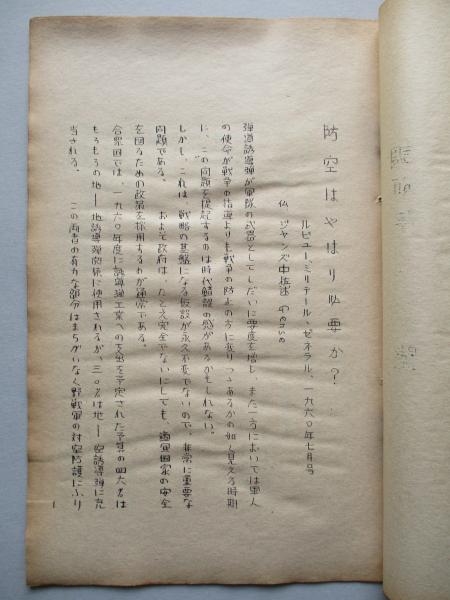 防空はやはり必要か?
ルビュー、ミリテール、ゼネラル、一九六〇年七月号
仏 ジャンズ中佐述
弾道誘導弾が軍隊の武器としてしだいに要度を増し、また一方においては軍人
の使命が戦争の指導よりも戦争の防止の方に変りつゝあるかの如く見える時期
に、この問題を提起するのは時代錯誤の感があるかもしれない。
しかも、これは、戦略の基盤になる仮設が永久不変でないので、非常に重要な
問題である。 およそ政府は、たとえ完全でないにしても、国家の安全
を図るための政策を採用するのが通常である。
合衆国では、一九六〇年度に誘導弾工業への支出を予定された予算の四六%は
もろもろの地―地誘導弾関係に使用されるが、三〇%は地―空誘導弾に充
当される。 この両者の有力な部分はまちがいなく野戦軍の対空防護にふり
1